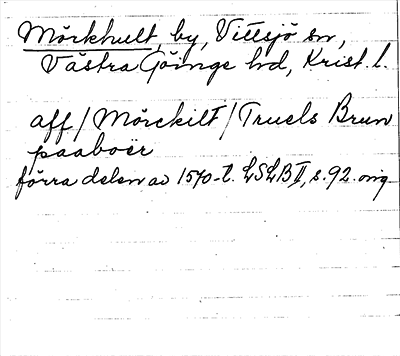 Mörkhult, by, Vittsjö sn,
Västra Göinge hd, Krist. l.
aff / Mörckilt / Truels Brun
paaboer
förra delen av 1570-t. LSLB II, s. 92. orig